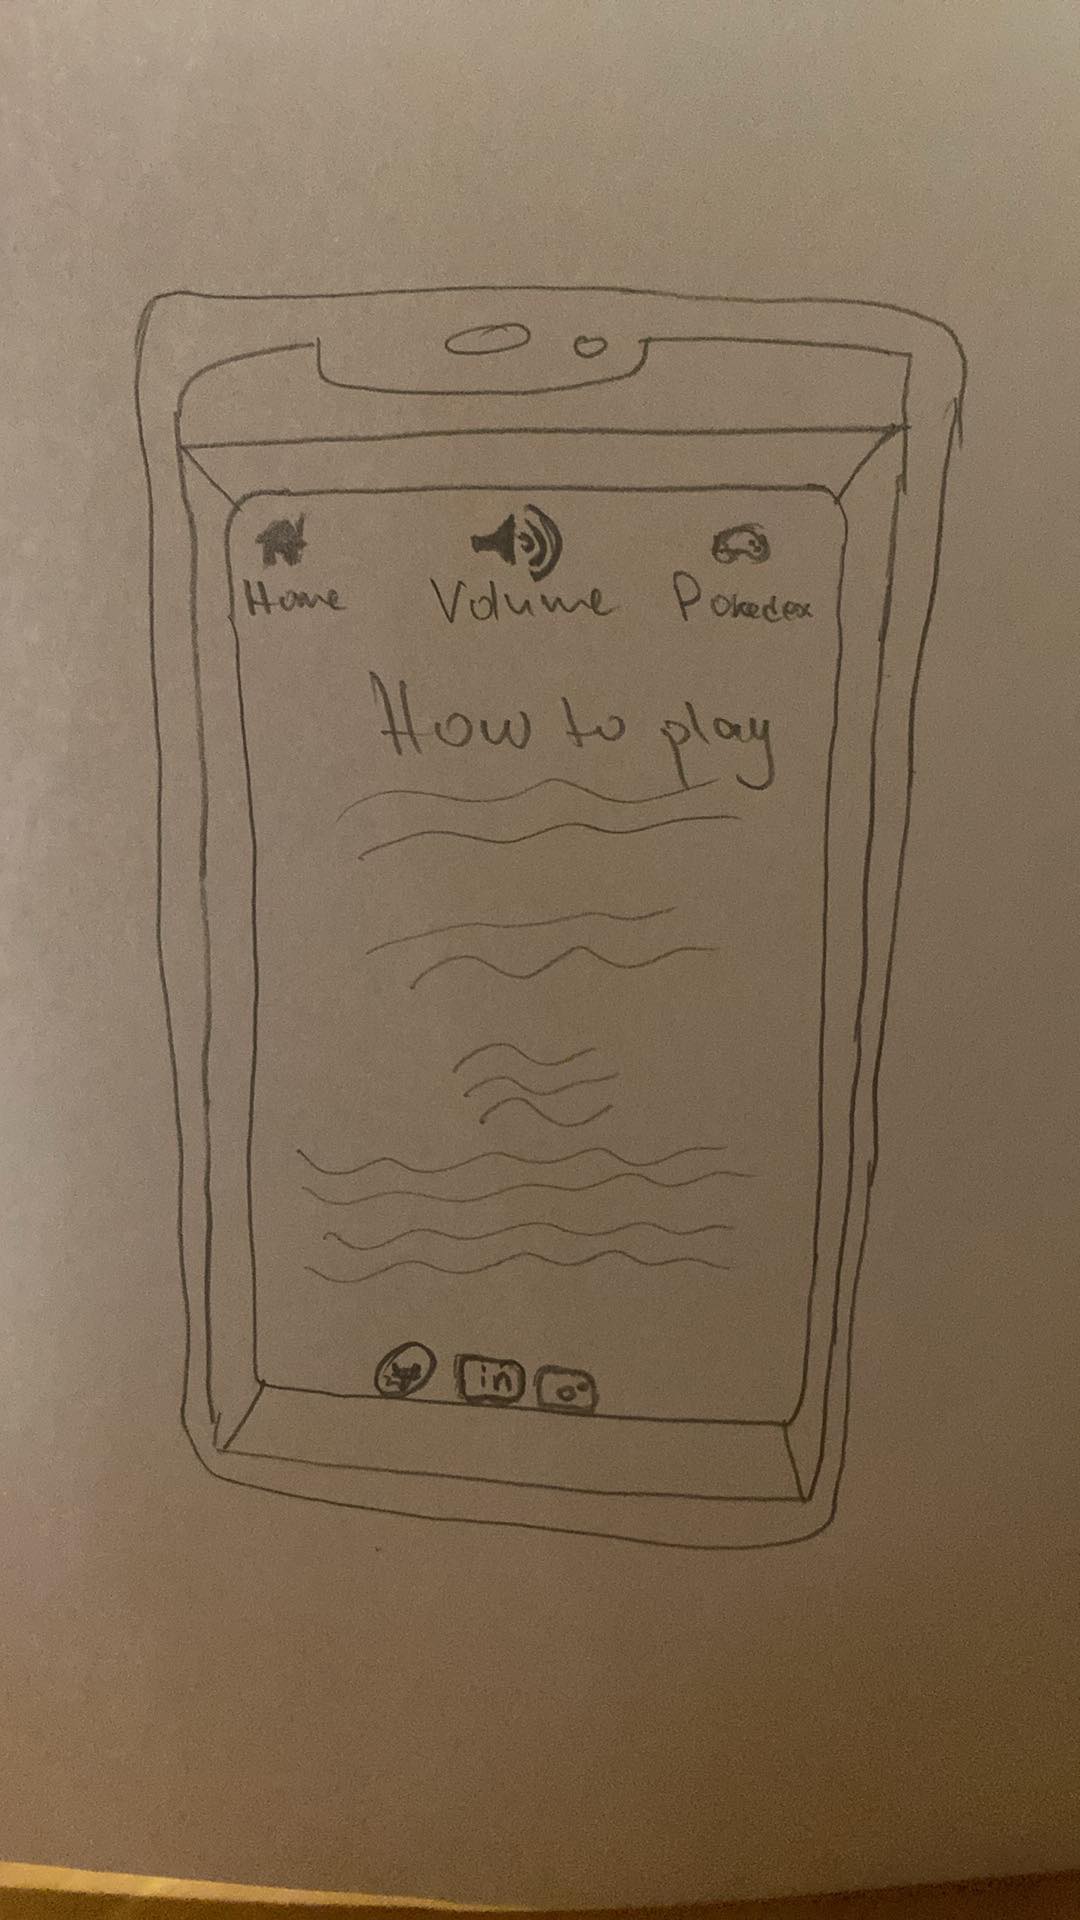 Home Volume Pokedex
How to play
in